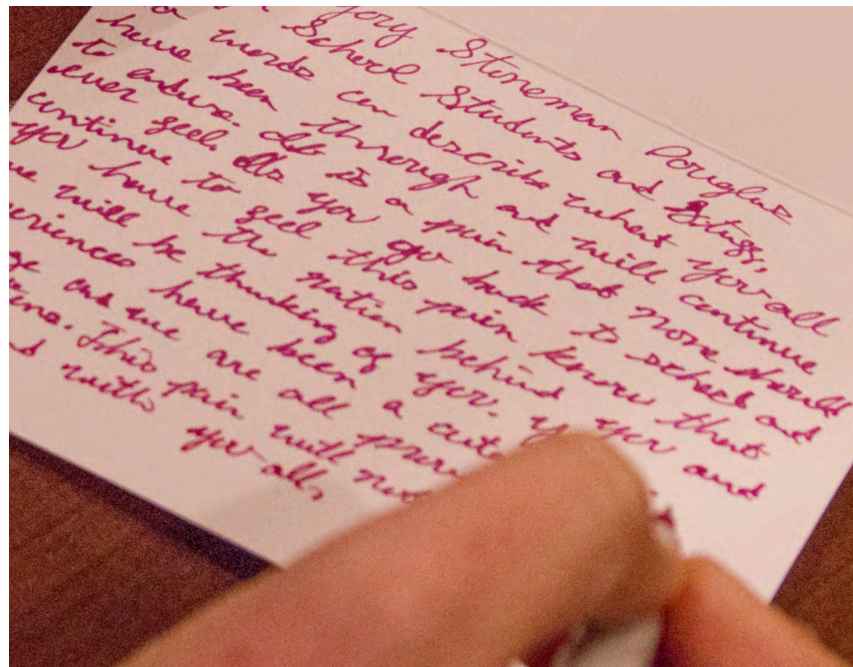 jory Stoneman Douglas
School Students and Staff,
words can describe what you all
have been through and will continue
to endure. It is a pain that none should
ever feel. As you go back to school and
continue to feel this pain know that
you have the nation behind you and
we will be thinking of you.
eriences have been a cata
ge and we are all
This pain will not
d with you all.